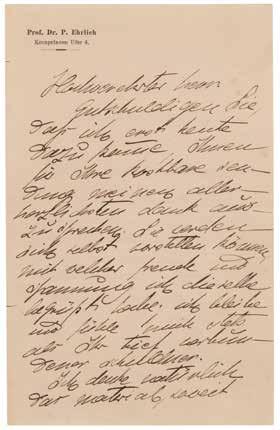 Prof. Dr. P. Ehrlich
Kronprinzen Ufer 4.
Hochverehrter Herr
Entschuldigen Sie,
daß ich erst heute
dazu komme, Ihnen
für Ihre kostbare Sen-
dung meinen aller-
herzlichsten Dank aus-
zusprechen. Sie werden
sich selbst vorstellen können,
mit welcher Freude und
Spannung ich dieselbe
begrüßt habe. Ich bleibe
und fühle mich stets
als Ihr tief verbun-
dener Schuldner.
Ich denke natürlich
das Material, soweit